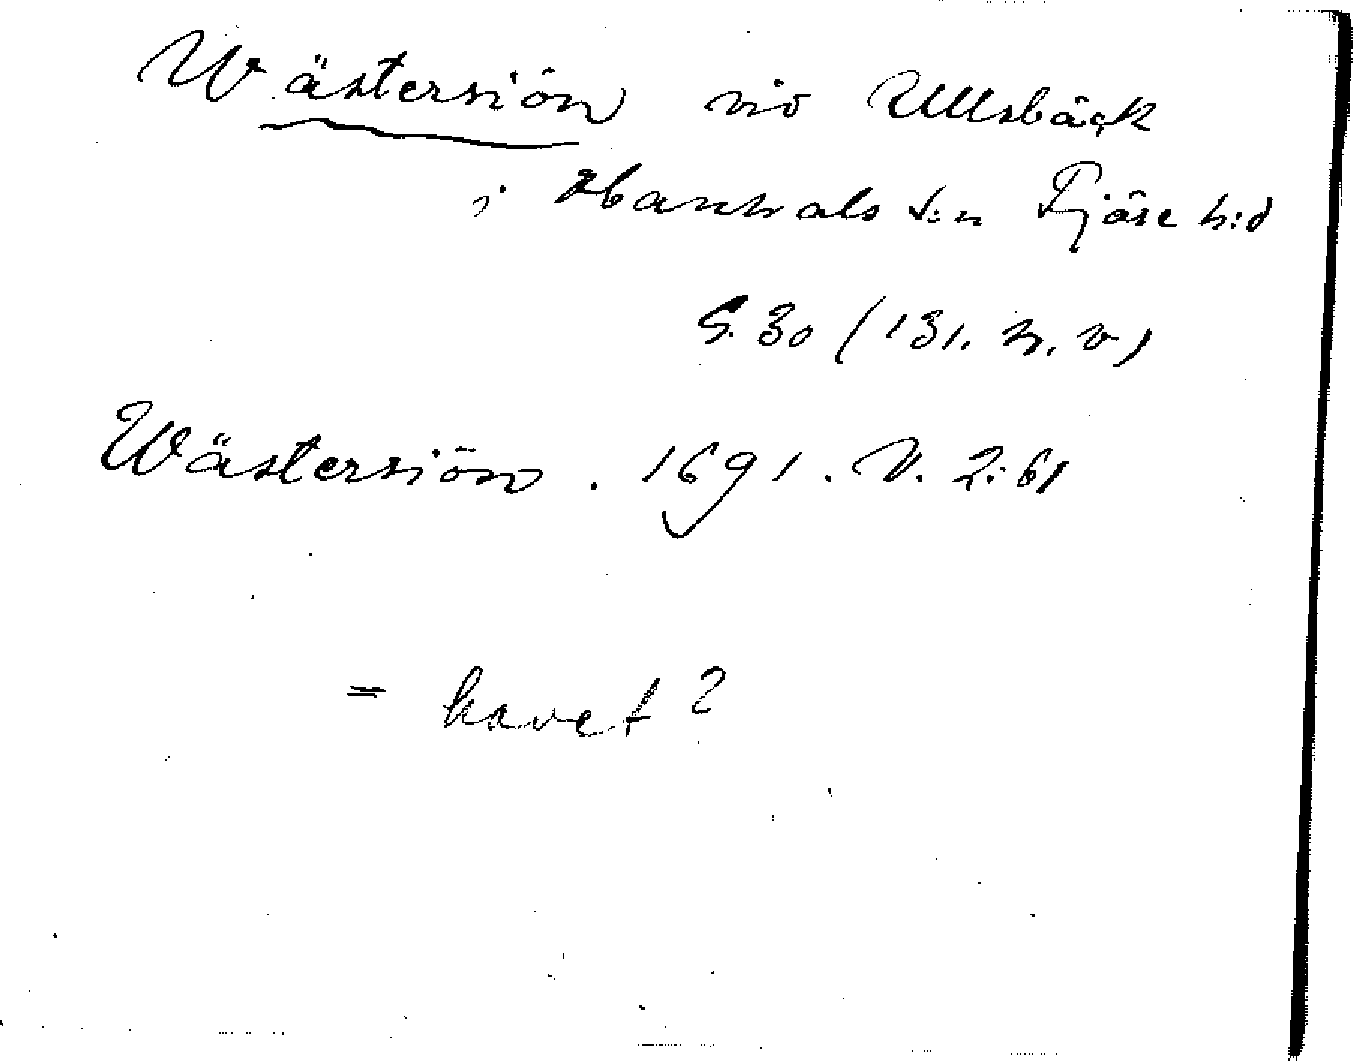 Wästersiön vid Ullsbäck
i Hanhals s:n Fjäre h:d
S. 30 (131. n. v)
Wästersiön. 1691. V. 2:61
= havet?